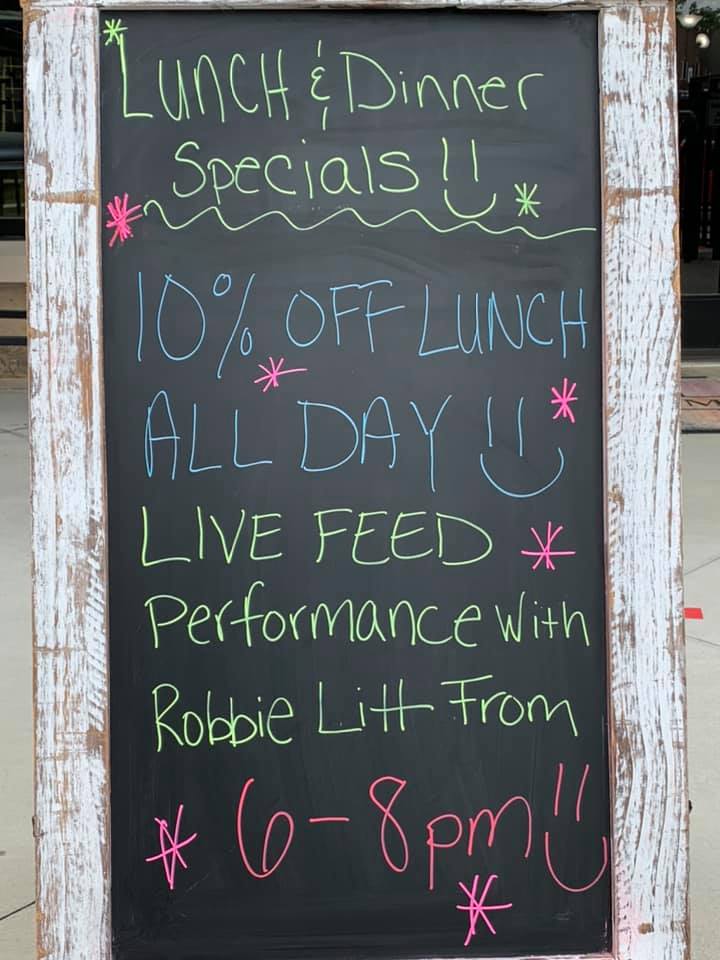 *Lunch & Dinner
Specials !! *
*
10% OFF LUNCH
*
ALL DAY !! *
LIVE FEED *
Performance with
Robbie Litt From
* 6-8pm !!
*